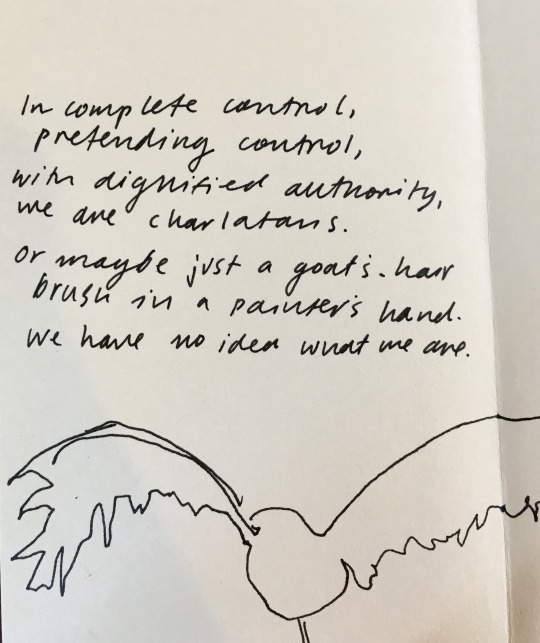 In complete control,
pretending control,
with dignified authority,
we are charlatans.
Or maybe just a goat's-hair
brush in a painter's hand.
We have no idea what we are.